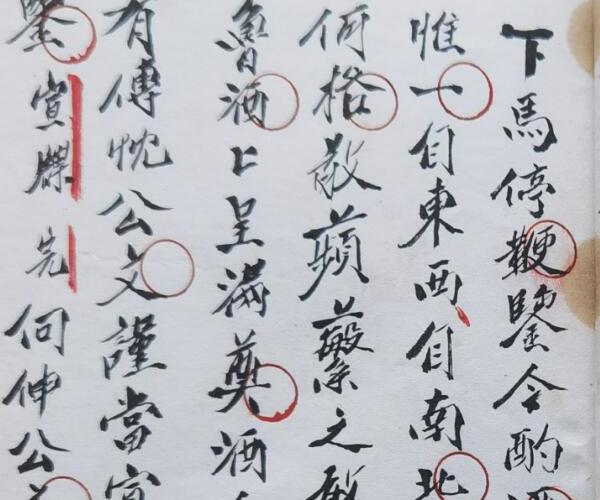 下馬停鞭鑒今酌
惟一自東西自南北
何格敢蘋蘩之敬
魯酒上呈滿奠酒
有傅忱公文謹當宣
鑒宣牒完何伸公